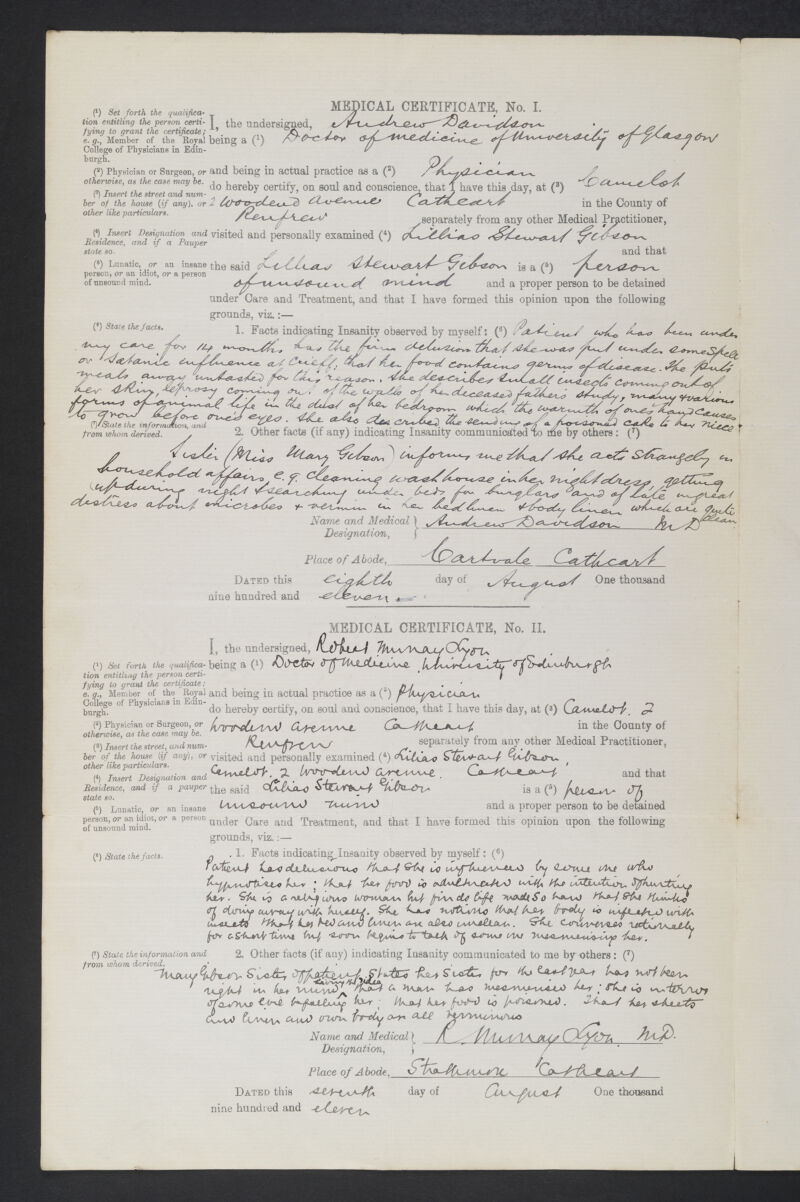 MEDICAL CERTIFICATE, No. I.
(1) Set forth the qualifica-
tion entitling the person certi-
fying to grant the certificate;
e.g., Member of the Royal
College of Physicians in Edin-
burgh.
I, the undersigned, Andrew Davidson
being a (1) Doctor of medicine of University of Glasgow
(2) Physician or Surgeon, or
otherwise, as the case may be.
and being in actual practice as a (2) Physician
do hereby certify, on soul and conscience, that I have this day, at (3) Camelot
(3) Insert the street and num-
ber of the house (if any), or
other like particulars.
2 Woodend Avenue Cathcart in the County of
Renfrew separately from any other Medical Practitioner,
(4) Insert Designation and
Residence, and if a Pauper
state so.
visited and personally examined (4) Lillias Stewart Gibson
and that
(5) Lunatic, or an insane
person, or an idiot, or a person
of unsound mind.
the said Lillias Stewart Gibson is a (5) person
of unsound mind and a proper person to be detained
under Care and Treatment, and that I have formed this opinion upon the following
grounds, viz.:—
(6) State the facts.
1. Facts indicating Insanity observed by myself: (6) Patient who has been under
my care for 14 months has the firm delusion that she was put under some spell
or Satanic influence at Crieff, that her food contains germs of disease. She puts
meals away untasted for this reason. She describes small insects coming out of
her skin, leprosy coming out of the walls of her deceased father's study, many & various
forms of animal life in the dust of her bedroom which the warmth of one's hand causes
to grow before one's eyes. She also described the sending of a poisoned cake to her niece.
(7) State the information, and
from whom derived.
2. Other facts (if any) indicating Insanity communicated to me by others: (7)
Sister (Miss Mary Gibson) informs me that she acts strangely in
household affairs, e.g. cleaning washhouse in her nightdress, getting
up during night & searching under beds for burglars and of late in great
distress about microbes & vermin in her bedlinen & body linen which are quite
clean
Name and Medical Designation, Andrew Davidson M.D
Place of Abode, Cartvale Cathcart
DATED this eighth day of August One thousand
nine hundred and eleven
MEDICAL CERTIFICATE, No. II.
I, the undersigned, Robert Murray Lyon
(1) Set forth the qualifica-
tion entitling the person certi-
fying to grant the certificate;
e.g., Member of the Royal
College of Physicians in Edin-
burgh.
being a (1) Doctor of Medicine, University of Edinburgh
and being in actual practice as a (2) Physician
do hereby certify, on soul and conscience, that I have this day, at (3) Camelot, 2
(2) Physician or Surgeon, or
otherwise, as the case may be.
Woodend Avenue Cathcart in the County of
(3) Insert the street, and num-
ber of the house (if any), or
other like particulars.
Renfrew separately from any other Medical Practitioner,
visited and personally examined (4) Lilias Stewart Gibson,
(4) Insert Designation and
Residence, and if a pauper
state so.
Camelot, 2 Woodend Avenue, Cathcart and that
the said Lilias Stewart Gibson is a (5) person of
(5) Lunatic, or an insane
person, or an idiot, or a person
of unsound mind.
unsound mind and a proper person to be detained
under Care and Treatment, and that I have formed this opinion upon the following
grounds, viz.:—
(6) State the facts.
1. Facts indicating Insanity observed by myself: (6)
Patient has delusions that she is influenced by some one who
hypnotises her; that her food is adulterated with the intention of hurting
her. She is a religious woman but finds life made so hard that she thinks
of doing away with herself. She has notions that her body is infected with
insects that her bed and linen are also unclean. She converses rationally
for a short time but soon begins to talk of some one mesmerising her.
(7) State the information and
from whom derived.
2. Other facts (if any) indicating Insanity communicated to me by others: (7)
Mary Gibson Sister of patient states her sister for the last year has not been
right in her mind, that a man has mesmerised her; she is in terror
of some evil befalling her; that her food is poisoned. That her sheets
and linen and own body are all verminous
Name and Medical Designation, R Murray Lyon. M.D.
Place of Abode, Strathmore Cathcart
DATED this seventh day of August One thousand
nine hundred and eleven